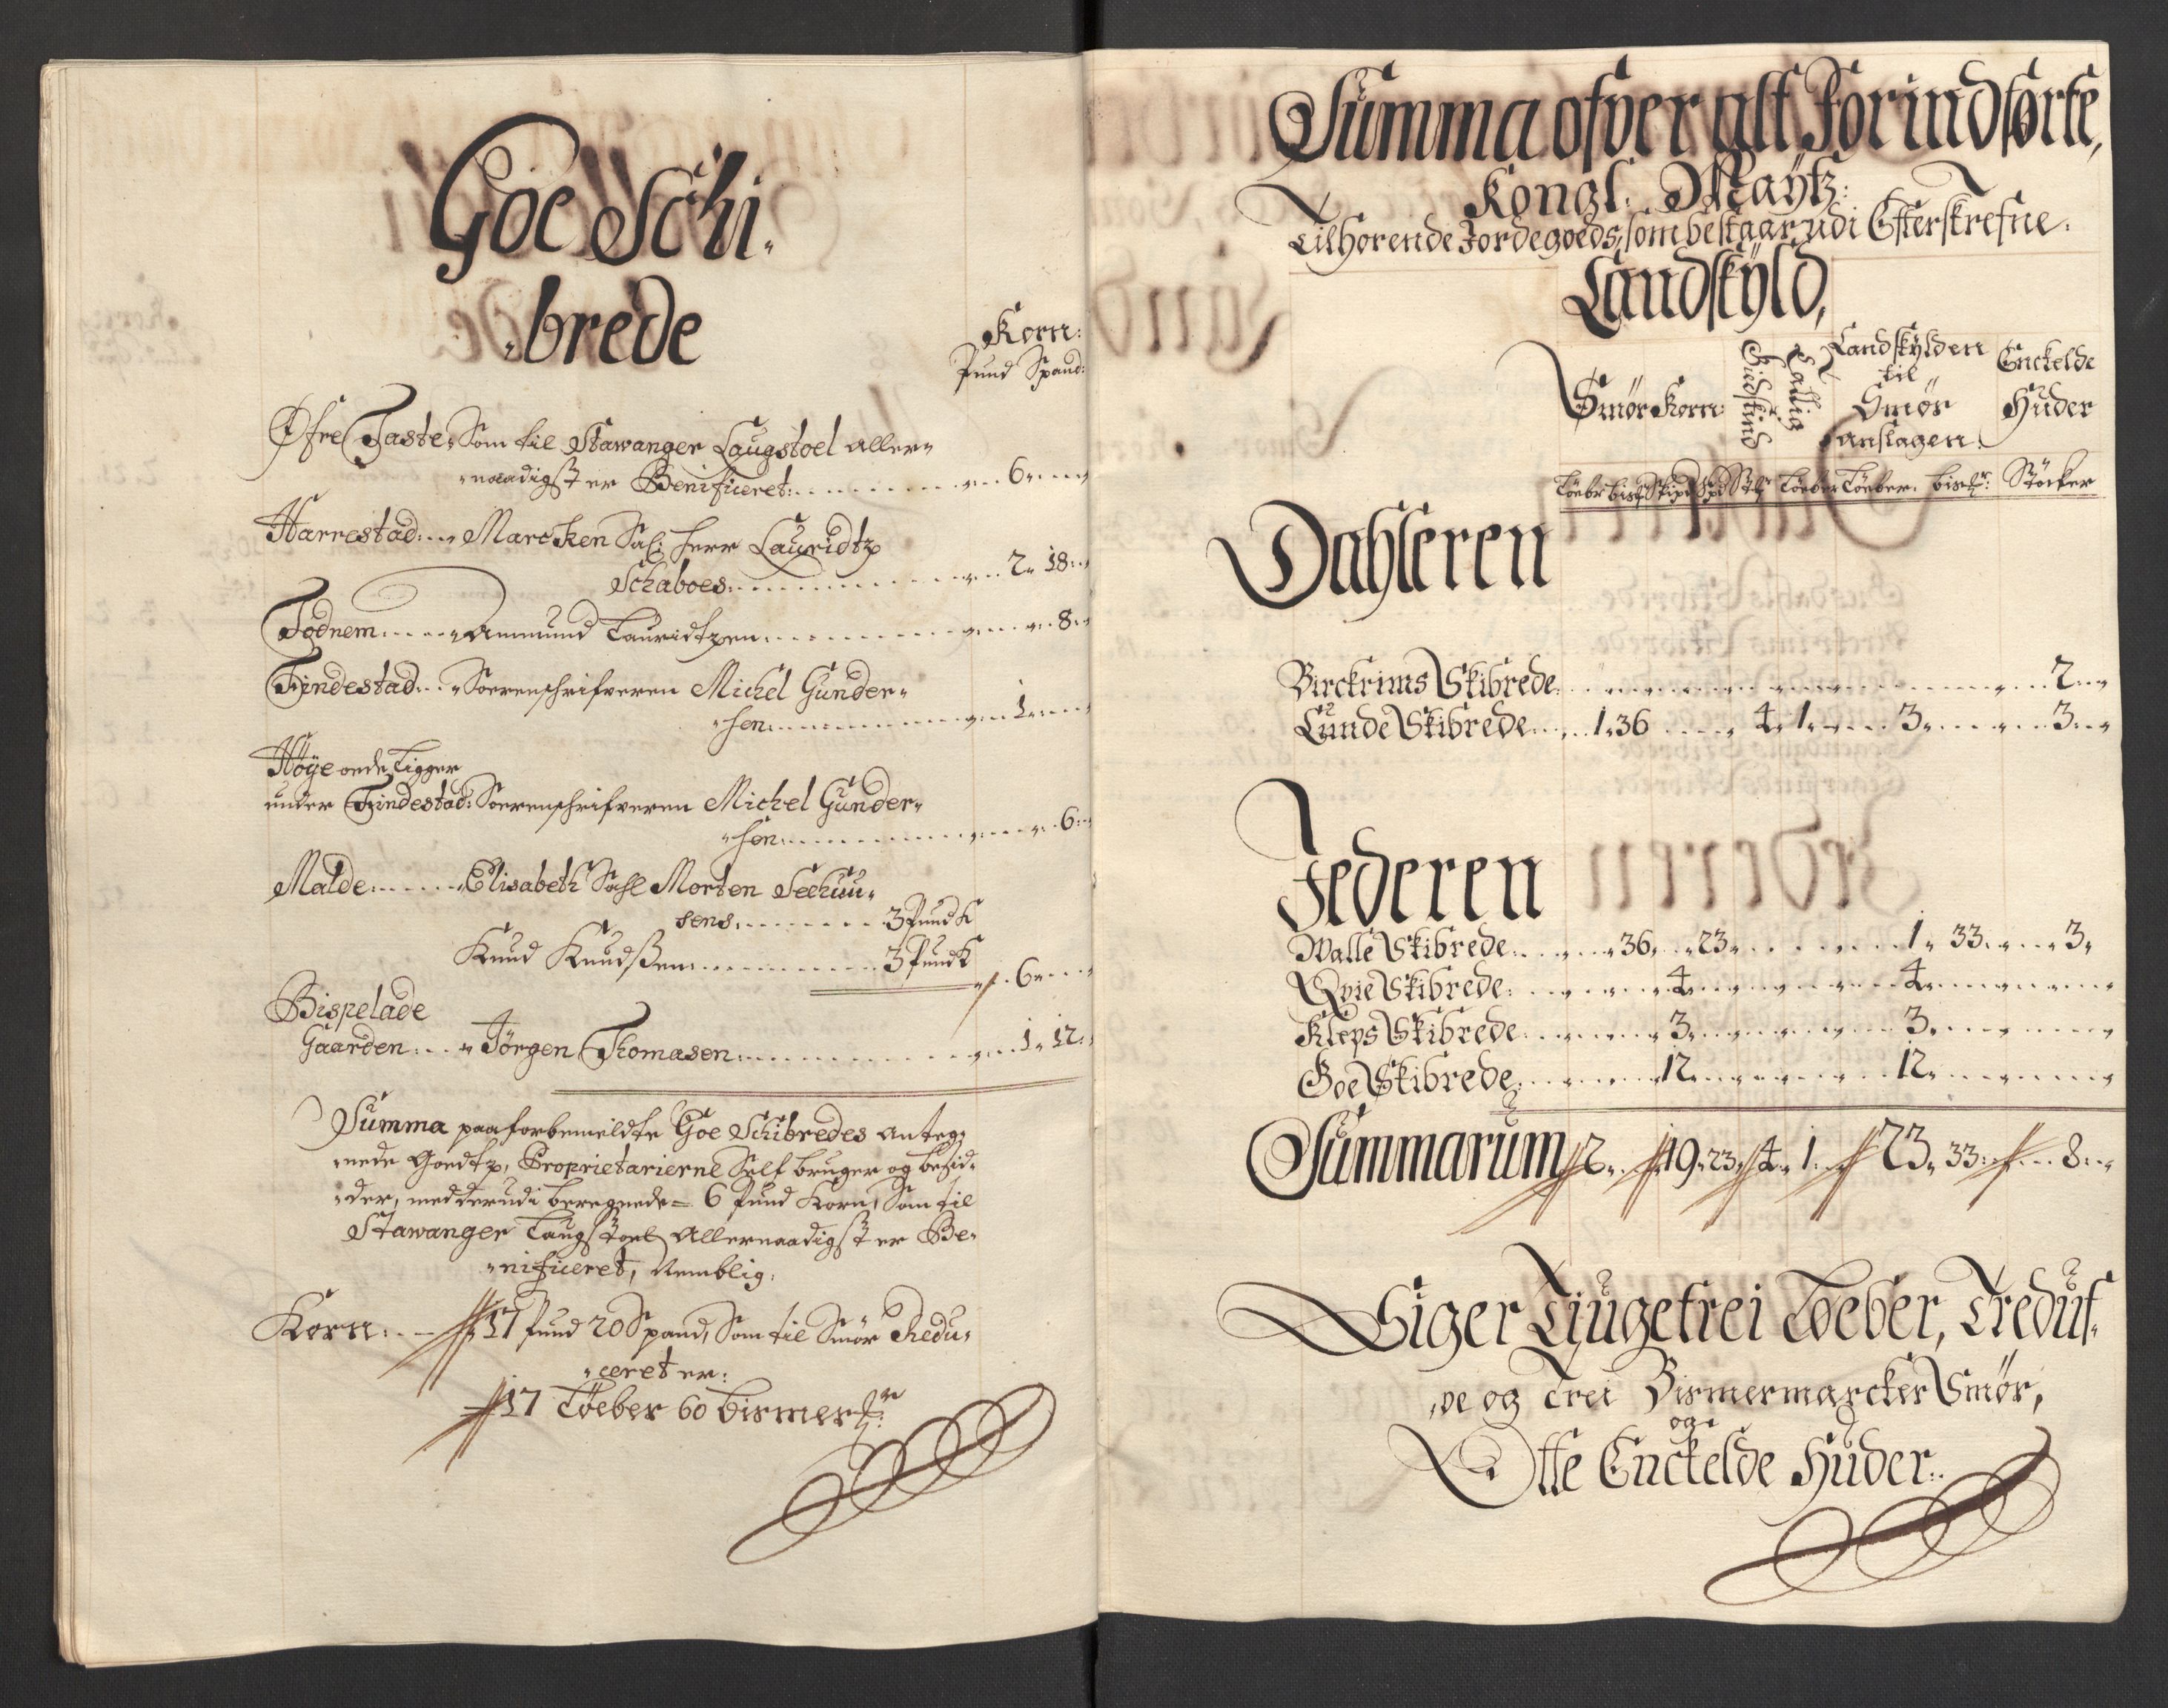 Goe Schi-
brede
Korn:
Pund Spand:
Øfre Taste, Som til Stawanger Laugstoel aller-
naadigst er Benificeret: 6
Harrestad: Marcken Sal: herr Lauridtz
Schaboes: 2 18
Todnem Ammund Lauridtzen 8
Findestad Sorenschrifveren Michel Gunder-
sen 1
Høÿe øede, ligger
under Findestad: Sorenschrifveren Michel Gunder-
sen 6
Malde Elisabeth Sahl Morten
sens 3 Pund K
Knud Knudßen 3 Pund K
6
Bispelade
Gaarden Jörgen Thomasen 1 12
Summa paa forbemeldte Goe Schibredes anteg-
nede Goedtz, Proprietarierne Self bruger og besid-
der, med derudi beregnede 6 Pund Korn, Som til
Stawanger Laugstoel Allernaadigst er Be-
nificeret, Nemblig:
Korn: 17 Pund 20 Spand, Som til Smör Redu-
ceret er:
17 Löeber 60 bismer
Summa ofver alt For indførte,
Kongl. Maÿtz:
Tilhørende Jordegoeds, som bestaar udi Efterskrefne.
Landskÿld,
Smør Korn: Giedskind Landskÿlden til Smör anslagen: Enckelde Huder
Löebr Löeber Löeber. Stöcker
Dahleren
Birckrims Skibrede 2
Lunde Skibrede 1 36 4 1 3 3
Jederen
Walle Skibrede 36 23 1 33 3
Qvie Skibrede: 4 4
Kleps Skibrede 3 3
Goe Skibrede 12 12
Summarum 2 19 23 4 1 23 33 8
Siger Tjugetrei Löeber, Treduf-
ve og Trei Bismermarcker Smør,
og
Otte Enckelde Huder.